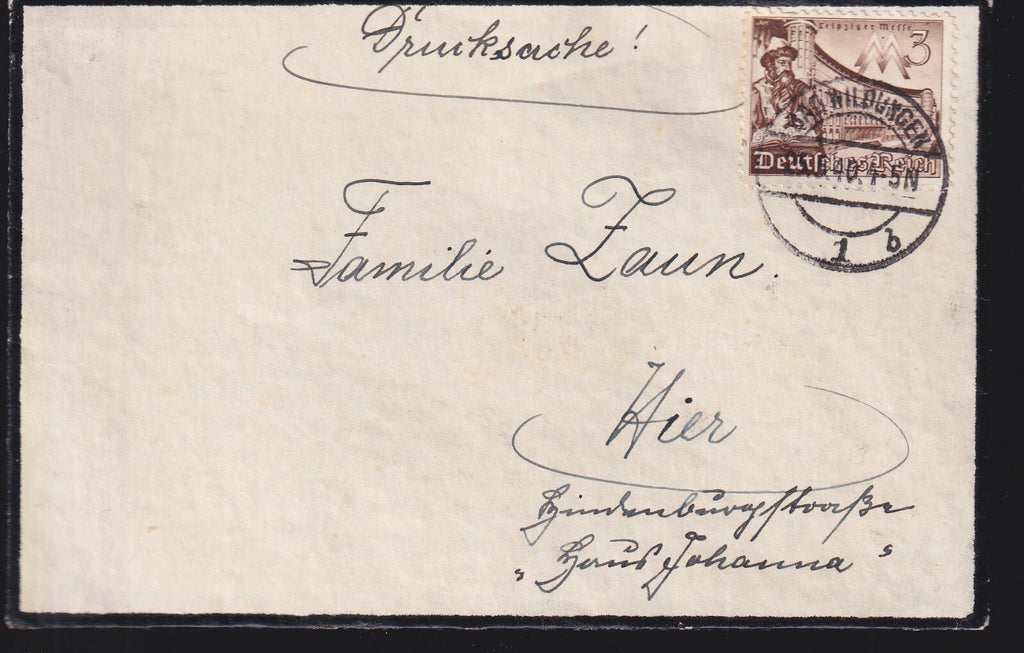 Drucksache!
Leipziger Messe
3
Deutsches Reich
BAD WILDUNGEN
40. 4-5N
1 b
Familie Zaun.
Hier
Hindenburgstraße
„Haus Johanna"